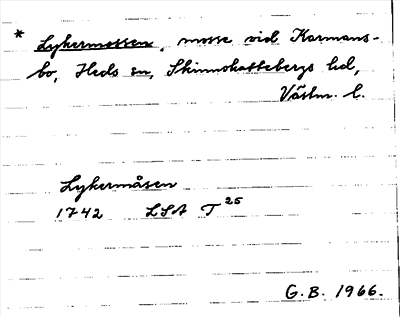 * Lykermossen, mosse vid Karmans-
bo, Heds sn, Skinnskattebergs hd,
Västm. l.
Lykermåsen
1742 LSA T 25
G.B. 1966.